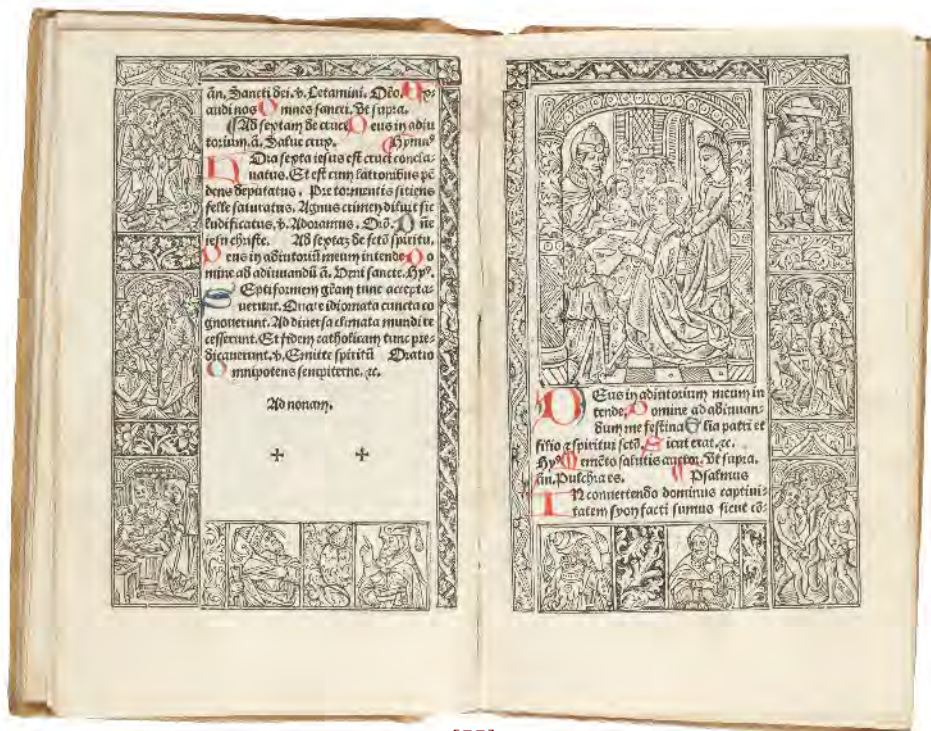 añ. Sancti dei. v. Letamini. Oro. Ex-
audi nos Omnes sancti. Vt supra.
Ad sextam de cruce Deus in adiu
torium. a. Salue crux. Hymnus
Hora sexta iesus est cruci concla-
uatus. Et est cum latronibus pē
dens deputatus. Pre tormentis sitiens
felle saturatus. Agnus crimen diluit sic
ludificatus. v. Adoramus. Orō. Dñe
iesu christe. Ad sextaz de sctō spiritu.
Deus in adiutoriū meum intende Do
mine ad adiuuandū a. Veni sancte. Hyꝰ.
Septiformem grām tunc accepta-
uerunt. Quare idiomata cuncta co
gnouerunt. Ad diuersa climata mundi re
cesserunt. Et fidem catholicam tunc pre-
dicauerunt. v. Emitte spiritū Oratio
Omnipotens sempiterne. ꝛc.
Ad nonam.
Deus in adiutorium meum in
tende. Domine ad adiuuan-
dum me festina Glia patri et
filio ꝛ spiritui sctō. Sicut erat. ꝛc.
Hyꝰ Memēto salutis auctor. Vt supra.
añ. Pulchra es. Psalmus
In conuertendo dominus captiui-
tatem syon facti sumus sicut cō-